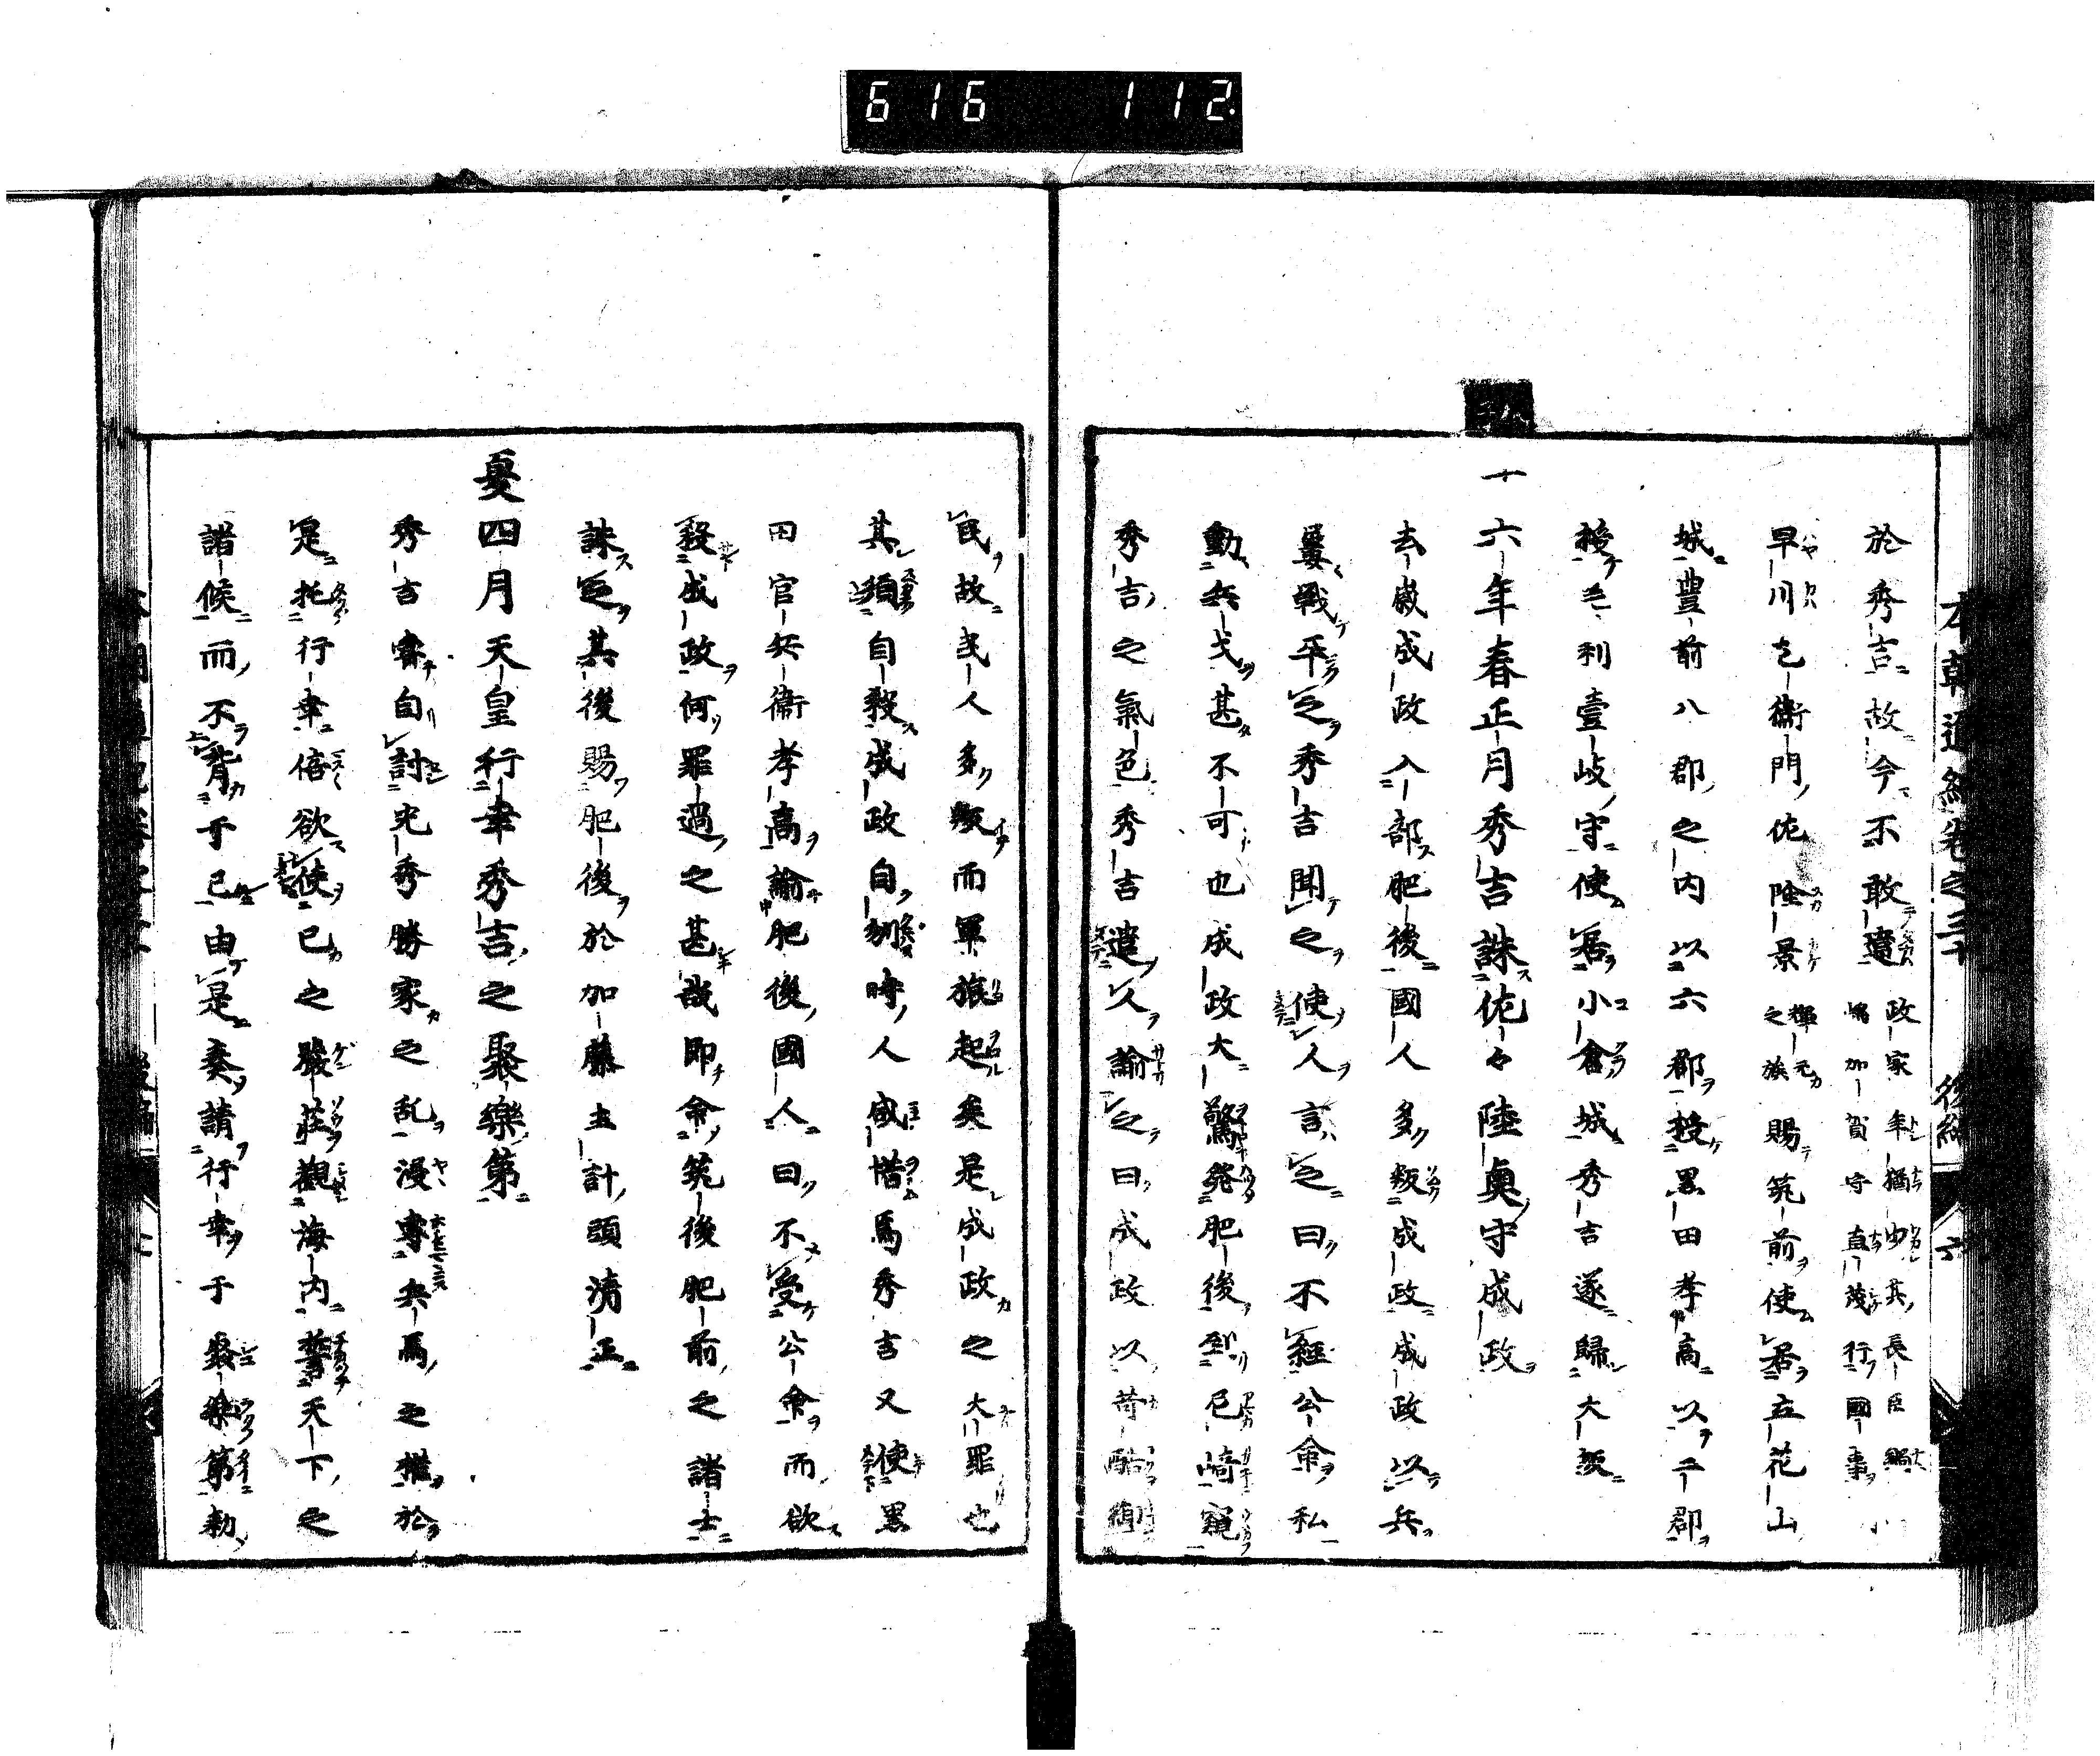 616 112
本朝通紀卷之三十 後編 六
於秀吉故今不敢違政家年猶少其長臣鍋
嶋加賀守直茂行國事小
早川乞衞門佐隆景輝元之族賜筑前使居立花山
城豊前八郡之内以六郡授黒田孝高以二郡
授毛利壹岐守使居小倉城秀吉遂歸大坂
十六年春正月秀吉誅佐々陸奥守成政
去歳成政入部肥後國人多叛成政成政以兵
屡戰平之秀吉聞之使人言之曰不經公命私
動兵戈甚不可也成政大驚発肥後到尼崎窺
秀吉之氣色秀吉遣人諭之曰成政以苛酷御
民故民人多叛而軍旅起矣是成政之大罪也
其須自殺成政自刎時人咸惜焉秀吉又使黒
田官兵衞孝高諭肥後國人曰不受公命而欲
殺成政何罪過之甚哉即命筑後肥前之諸士
誅之其後賜肥後於加藤主計頭清正
夏四月天皇行幸秀吉之聚樂第
秀吉嘗自討光秀勝家之乱漫專兵馬之權於
是托行幸倍欲使已之嚴莊觀海内警天下之
諸候而不背于已由是奏請行幸于聚樂第勅